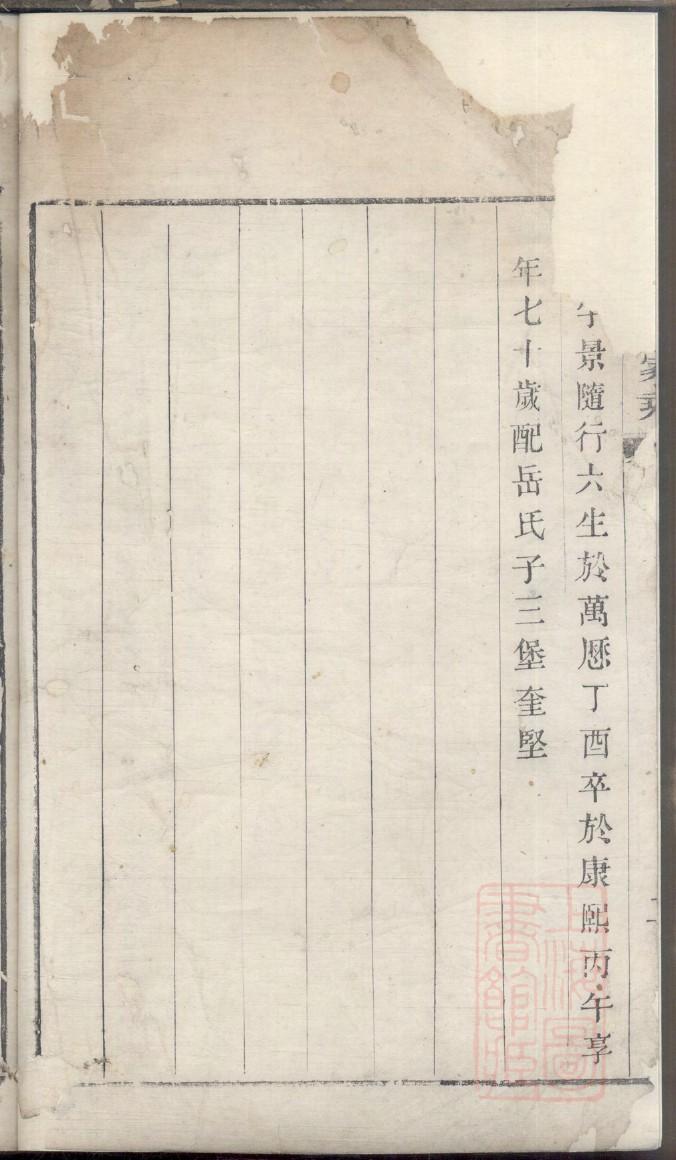 字景隨行六生於萬歷丁酉卒於康熙丙午享
年七十歲配岳氏子三堡奎堅
上海圖
書館藏